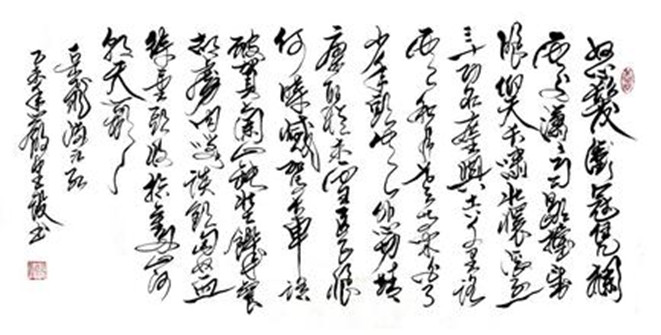 怒髮衝冠憑欄
處瀟瀟雨歇擡望
眼仰天長嘯壯懷激烈
三十功名塵與土八千里路
雲和月莫等閑白了
少年頭空悲切靖
康恥猶未雪臣子恨
何時滅駕長車踏
破賀蘭山缺壯志飢餐
胡虜肉笑談渴飲匈奴血
待從頭收拾舊山河
朝天闕
岳飛滿江紅
乙未年書